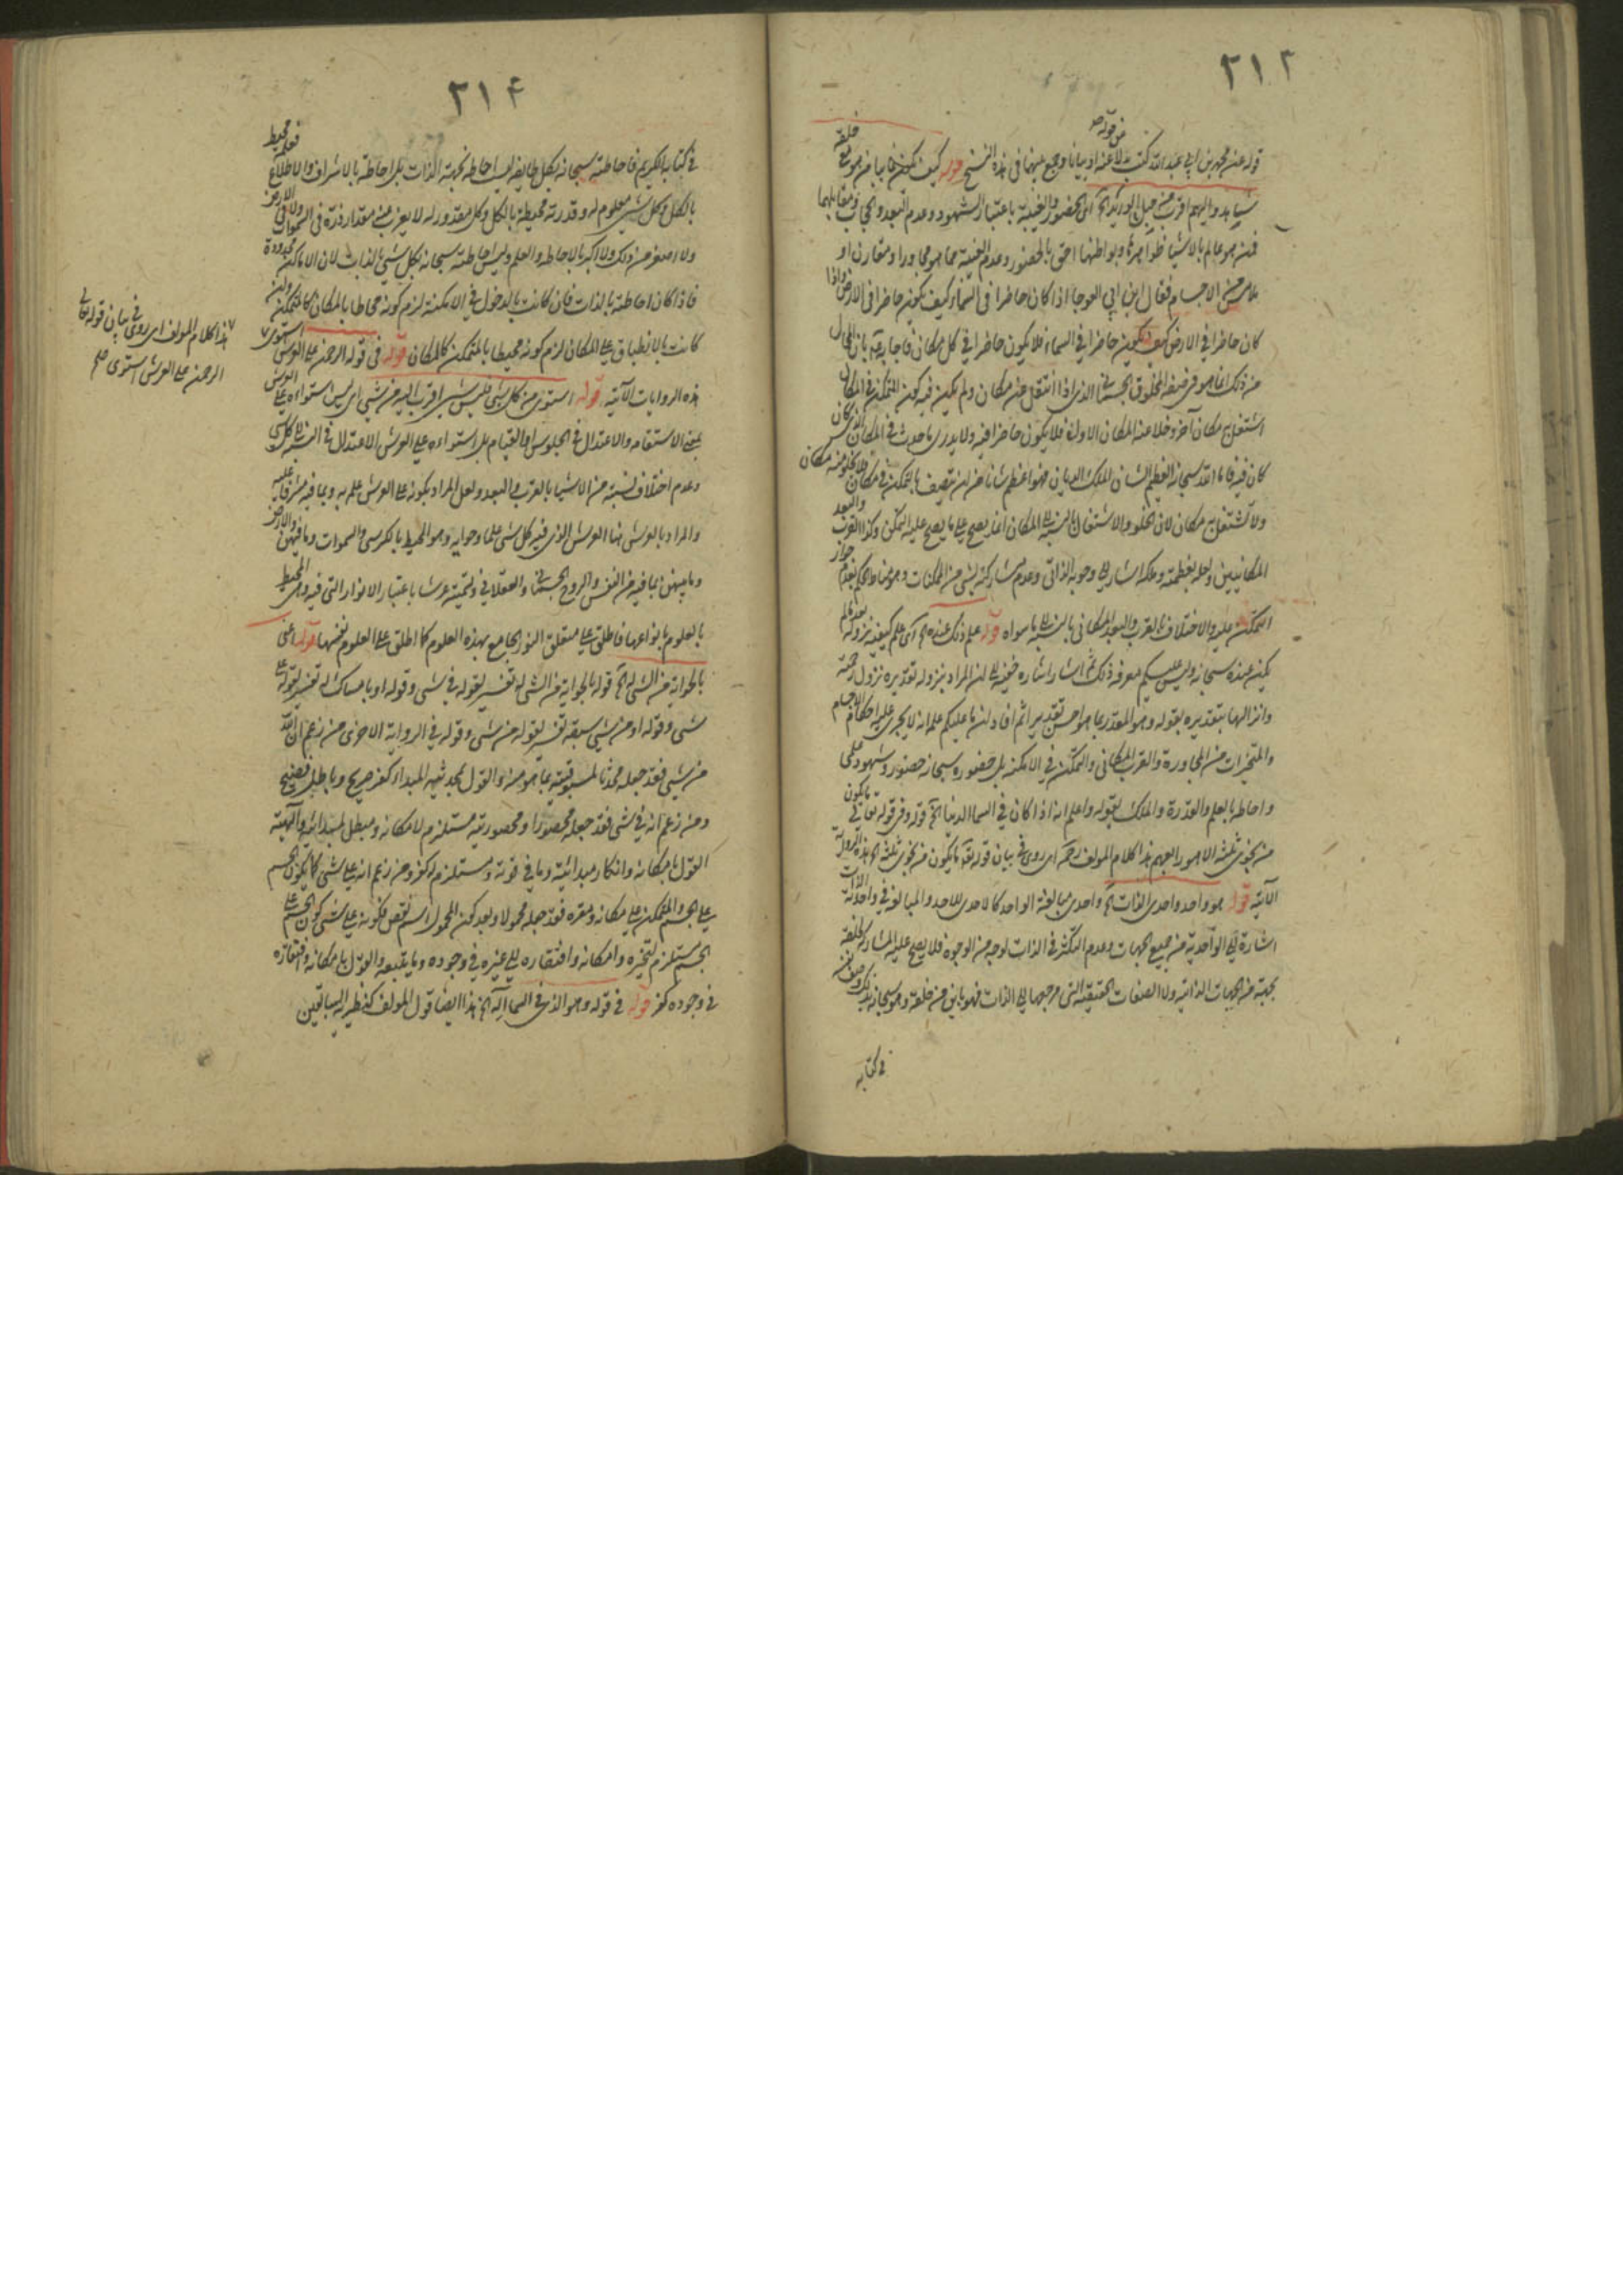 ٢١٣
قوله عنه محمد بن ابي عبد الله كتب بدلا عنه او بيانا وجمع بينهما في هذه النسخ قوله كيف يكون غائبا من هو مع خلقه
شاهد واليهم اقرب من حبل الوريد الخ اي الحضور والغيبة باعتبار الشهود وعدم البعد والحجاب ومقابلهما
فمن هو عالم بالاشياء ظواهرها وبواطنها احق بالحضور وعدم الغيبة مما هو مجاورا ومقارن او
ملامس من الاجسام فقال ابن ابي العوجا اذا كان حاضرا في السماء كيف يكون حاضرا في الارض واذا
كان حاضرا في الارض كيف يكون حاضرا في السماء فلا يكون حاضرا في كل مكان فاجاب بان الحال
من ذلك انما هو في صفة المخلوق الجسماني الذي اذا انتقل عن مكان ولم يكن فيه كون المتمكن في المكان
اشتغل به مكان آخر وخلا عنه المكان الاول فلا يكون حاضرا فيه ولا يدري ما حدث في المكان الذي كان
كان فيه فاما الله سبحانه العظيم الشان الملك الديان فهو اعظم شانا من ان يتصف بالتمكن في مكان فلا يخلو منه مكان
ولا يشتغل به مكان لان الخلو والاشتغال بالنسبة الى المكان انما يصح على ما يصح عليه التمكن وكذا القرب والبعد
المكانيين ولعله بعظمته وملكه اشار الى وجوبه الذاتي وعدم مشاركته لشيء من الممكنات وهو مناط الحكم بعدم جواز
التمكن عليه والاختلاف بالقرب والبعد المكاني بالنسبة الى ما سواه قوله علم ذلك عنده الخ اي علم كيفية نزوله بعد ما لم
يكن عنده سبحانه وليس عليكم معرفة ذلك ثم اشار اشارة خفية الى ان المراد بنزوله تقديره نزول رحمته
وانزالها بتقديره بقوله وهو المقدر بما هو احسن تقديرا ثم افاد ان ما عليكم علمه انه لا يجري عليه احكام الاجسام
والمتحيزات من المجاورة والقرب المكاني والتمكن في الامكنة بل حضوره سبحانه حضور وشهود علمي
واحاطة بالعلم والقدرة والملك بقوله واعلم انه اذا كان في السماء الدنيا الخ قوله وفي قوله تعالى ما يكون
من نجوى ثلثة الا هو رابعهم هذا كلام المولف رحمه اي روى في بيان قوله تعالى ما يكون من نجوى ثلثة الخ هذه الرواية
الآتية قوله هو واحد واحدي الذات الخ واحدي مبالغة الواحد كالاحدي للاحد والمبالغة في واحدية الذات
اشارة الى الواحدية من جميع الجهات وعدم التكثر في الذات لوجه من الوجوه فلا يصح عليه المشاركة لخلقه
بجهة من الجهات الذاتية ولا الصفات الحقيقية التي مرجعها الى الذات فهو باين من خلقه وهو سبحانه بذلك وصف نفسه
في كتابه
٢١٤
في كتابه الكريم فاحاطته سبحانه بكل شيء ليس احاطة بجهة الذات بل احاطة بالاشراف والاطلاع فعلمه محيط
بالكل وكل شيء معلوم له وقدرته محيطة بالكل وكل مقدور له لا يعزب عنه مقدار ذرة في السموات ولا في الارض
ولا اصغر من ذلك ولا اكبر بالاحاطة والعلم وليس احاطته سبحانه بكل شيء بالذات لان الاماكن محدودة
فاذا كان احاطته بالذات فان كانت بالدخول في الامكنة لزم كونه محاطا بالمكان كالمتمكن وان
كانت بالانطباق على المكان لزم كونه محيطا بالمتمكن كالمكان قوله في قوله الرحمن على العرش استوى
هذه الروايات الآتية قوله استوى من كل شيء فليس شيء اقرب اليه من شيء اي ليس استواءه على العرش
بمعنى الاستقامة والاعتدال في الجلوس او القيام بل استواءه على العرش الاعتدال في النسبة الى كل شيء
وعدم اختلاف نسبته من الاشياء بالقرب والبعد ولعل المراد بكونه على العرش علمه به وبما فيه مشرفا عليه
والمراد بالعرش هنا العرش الذي فيه كل شيء علما وحوايه وهو المحيط بالكرسي والسموات وما فيهن والارض
وما بينهن بما فيه من النفس والروح الجسماني والعقلاني وتسميته عرشا باعتبار الانوار التي فيه وهي المحيط
بالعلوم بانواعها فاطلق على متعلق النور الجامع بهذه العلوم كما اطلق على العلوم نفسها قوله اعني
بالحواية من الشيء الخ قوله بالحواية من الشيء له تفسير لقوله في شيء وقوله او بامساك له تفسير لقوله على
شيء وقوله او من شيء سبقه تفسير لقوله من شيء وقوله في الرواية الاخرى من زعم ان الله
من شيء فقد جعله محدثا لمسبوقيته بما هو منه والقول بمحدثية المبداء كفر صريح وباطل فضيح
ومن زعم انه في شيء فقد جعله محصورا ومحصوريته مستلزم لامكانه ومبطل لمبدائيته والهيته
القول بامكانه وانكار مبدائيته وما في قوته ومستلزم له كفر ومن زعم انه على شيء كما يكون الجسم
على الجسم والمتمكن على مكانه ومقره فقد جعله محمولا وبعد كون المحمول اسم نقص فكونه على شيء كون الجسم على
الجسم مستلزم لتحيزه وامكانه وافتقاره الى غيره في وجوده وما يتبعه والقول بامكانه وافتقاره
في وجوده كفر قوله في قوله وهو الذي في السماء اله الخ هذا ايضا قول المولف كنظيريه السابقين
هذا كلام المولف اي روى في بيان قوله تعالى
الرحمن على العرش استوى صح